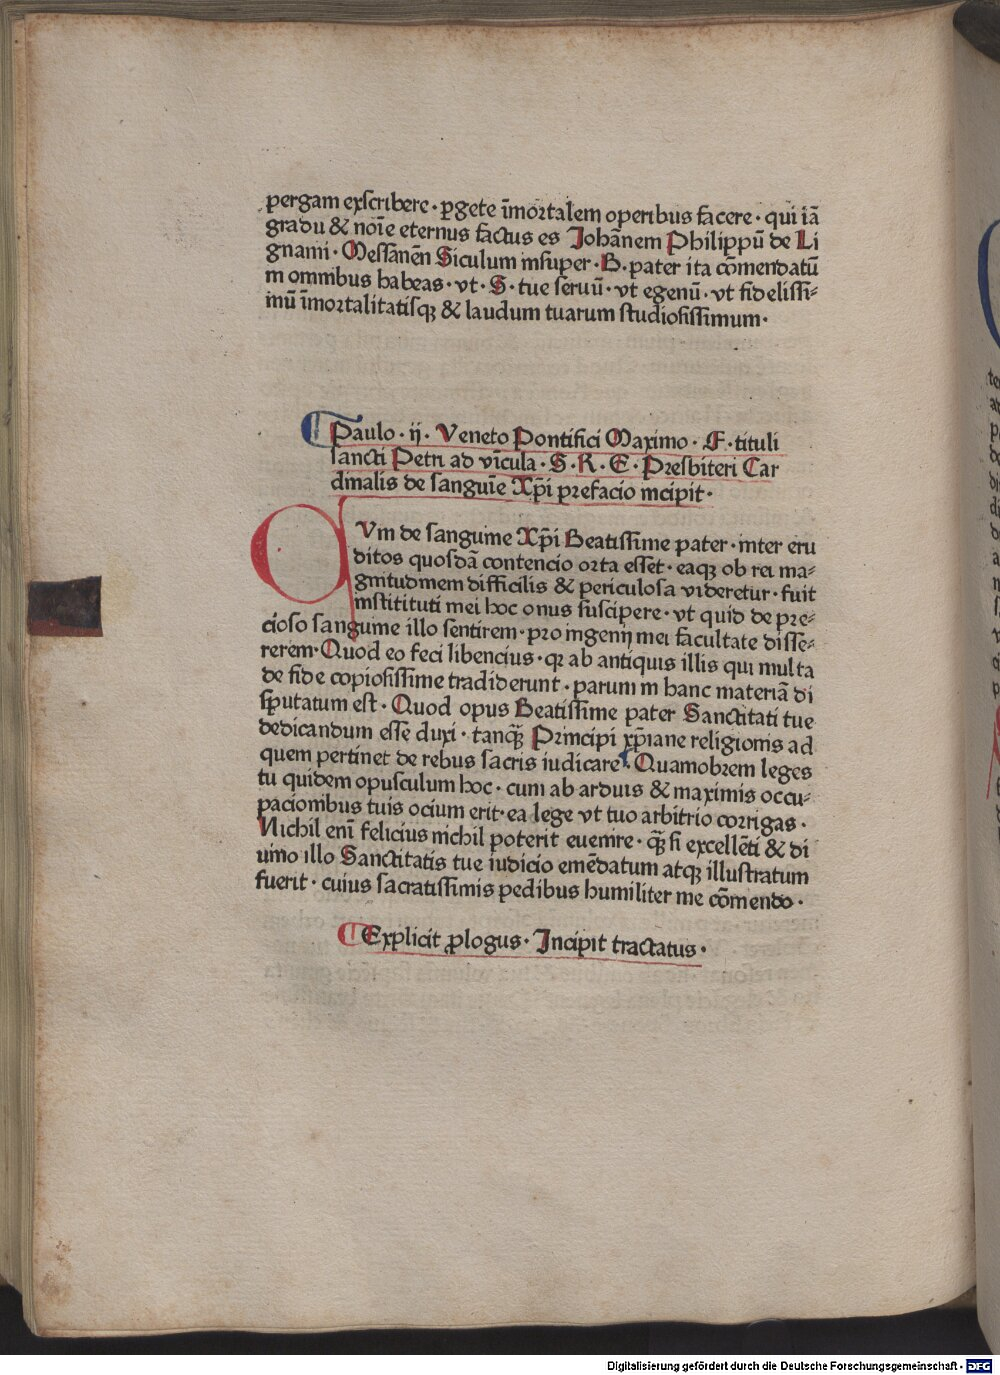 pergam exſcribere · ꝑgete īmortalem operibus facere · qui iā
gradu & noīe eternus factus es Johānem Philippū de Li
gnami · Meſſanēn Siculum inſuper · B · pater ita cōmendatū
in omnibus habeas · vt · S · tue ſeruū · vt egenū · vt fideliſſi⸗
mū īmortalitatiſqꝫ & laudum tuarum ſtudioſiſſimum ·
Paulo · ij · Veneto Pontifici Maximo · F · tituli
ſancti Petri ad vīcula · S · R · E · Presbiteri Car
dinalis de ſanguīe Xp̄i prefacio incipit ·
QVm de ſanguine Xp̄i Beatiſſime pater · inter eru
ditos quoſdā contencio orta eſſet · eaqꝫ ob rei ma⸗
gnitudinem difficilis & periculoſa videretur · fuit
inſtitituti mei hoc onus ſuſcipere · vt quid de pre⸗
cioſo ſanguine illo ſentirem · pro ingenij mei facultate diſſe⸗
rerem · Quod eo feci libencius · qꝛ ab antiquis illis qui multa
de fide copioſiſſime tradiderunt · parum in hanc materiā di
ſputatum eſt · Quod opus Beatiſſime pater Sanctitati tue
dedicandum eſſe duxi · tanqꝫ̄ Principi xp̄iane religionis ad
quem pertinet de rebus ſacris iudicare · Quamobrem leges
tu quidem opuſculum hoc · cum ab arduis & maximis occu⸗
pacionibus tuis ocium erit · ea lege vt tuo arbitrio corrigas ·
Nichil enī felicius nichil poterit euenire · qꝫ̄ ſi excellēti & di
uino illo Sanctitatis tue iudicio emēdatum atqꝫ illuſtratum
fuerit · cuius ſacratiſſimis pedibus humiliter me cōmendo ·
Explicit ꝓlogus · Incipit tractatus ·
Digitalisierung gefördert durch die Deutsche Forschungsgemeinschaft - DFG